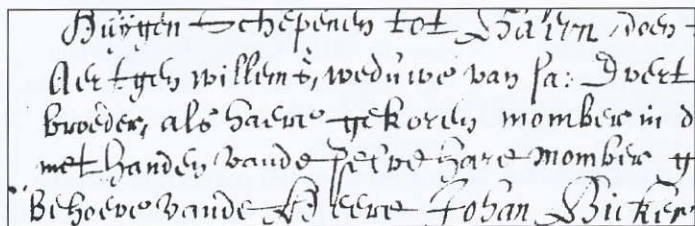 Huÿgen Schepenen tot Baern, doen
Aertgen willems, weduwe van sa: Evert
broeder, als haere gekoren momber in d
met handen vande selve hare momber g
Behoeve vande Heere Johan Bicker